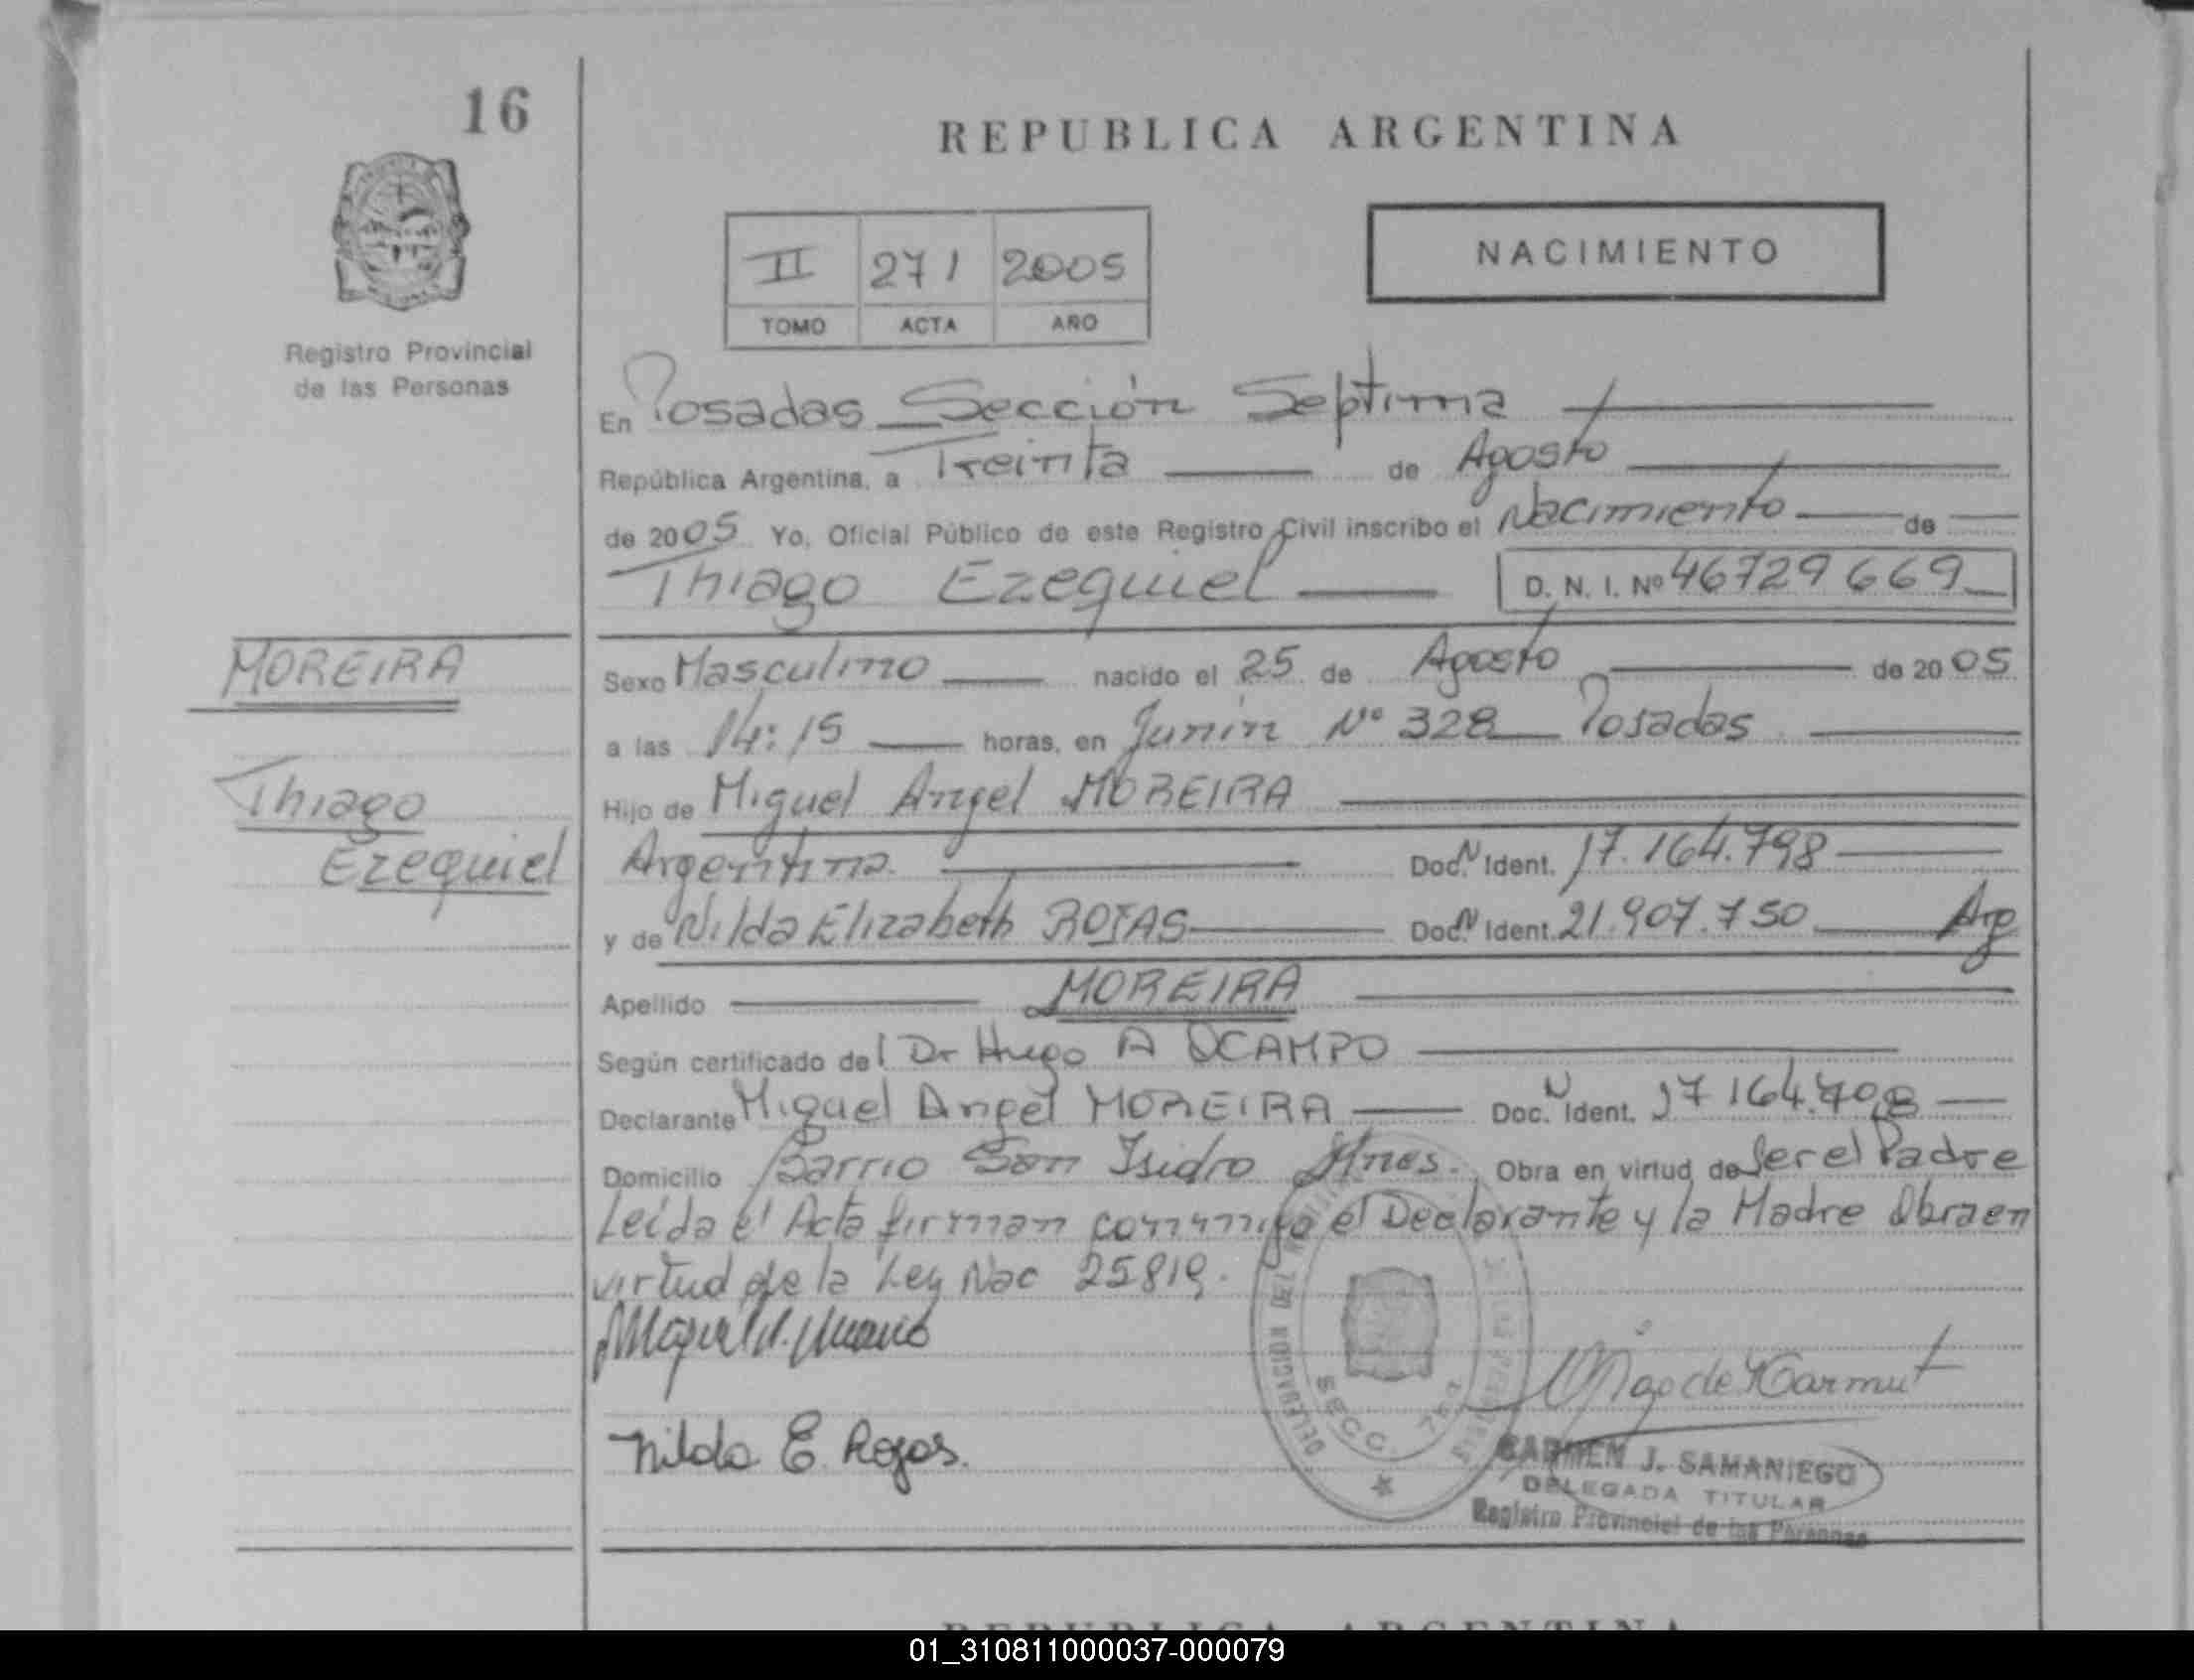 16
REPUBLICA ARGENTINA
II 271 2005
TOMO ACTA AÑO
NACIMIENTO
Registro Provincial
de las Personas
En Posadas Sección Septima
República Argentina, a Treinta de Agosto
de 2005 Yo, Oficial Público de este Registro Civil inscribo el Nacimiento de
Thiago Ezequiel D. N. I. Nº 46729669
MOREIRA
Thiago
Ezequiel
Sexo Masculino nacido el 25 de Agosto de 2005
a las 14:15 horas, en Junin Nº 328 Posadas
Hijo de Miguel Angel MOREIRA
Argentina Doc. N Ident. 17.164.798
y de Nilda Elizabeth ROJAS Doc. N Ident. 21.907.750 Arg
Apellido MOREIRA
Según certificado del Dr Hugo A OCAMPO
Declarante Miguel Angel MOREIRA Doc. N Ident. 17 164.798
Domicilio Barrio San Isidro Obra en virtud de Ser el Padre
Leída el Acta firman conmigo el Declarante y la Madre Obra en
virtud de la Ley Nac 25819.
Nilda E. Rojas.
DELEGACION DEL
SECC. 7ma
CARMEN J. SAMANIEGO
DELEGADA TITULAR
Registro Provincial de las Personas
REPUBLICA ARGENTINA
01_310811000037-000079